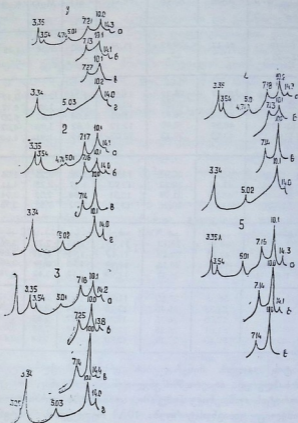 3.35 3.54 4.74 5.01 7.21 10.2 14.3 а
7.13 10.1 14.1 б
7.27 10.1 в
3.34 5.03 10.2 14.0 г
2
3.35 3.54 4.74 5.01 7.17 10.1 14.1 а
7.16 14.0 б
7.14 в
3.34 5.02 10.1 14.0 г
3
3.35 3.54 5.01 7.16 10.1 14.2 а
7.25 10.0 13.8 б
7.14 14.4 в
3.34 5.03 14.0 г
3.35 3.54 4.74 7.19 14.3 а
7.13 б
7.14 в
3.34 5.02 14.0 г
5
3.35 3.54 5.01 7.15 10.1 14.3 а
7.14 14.1 б
7.14 в